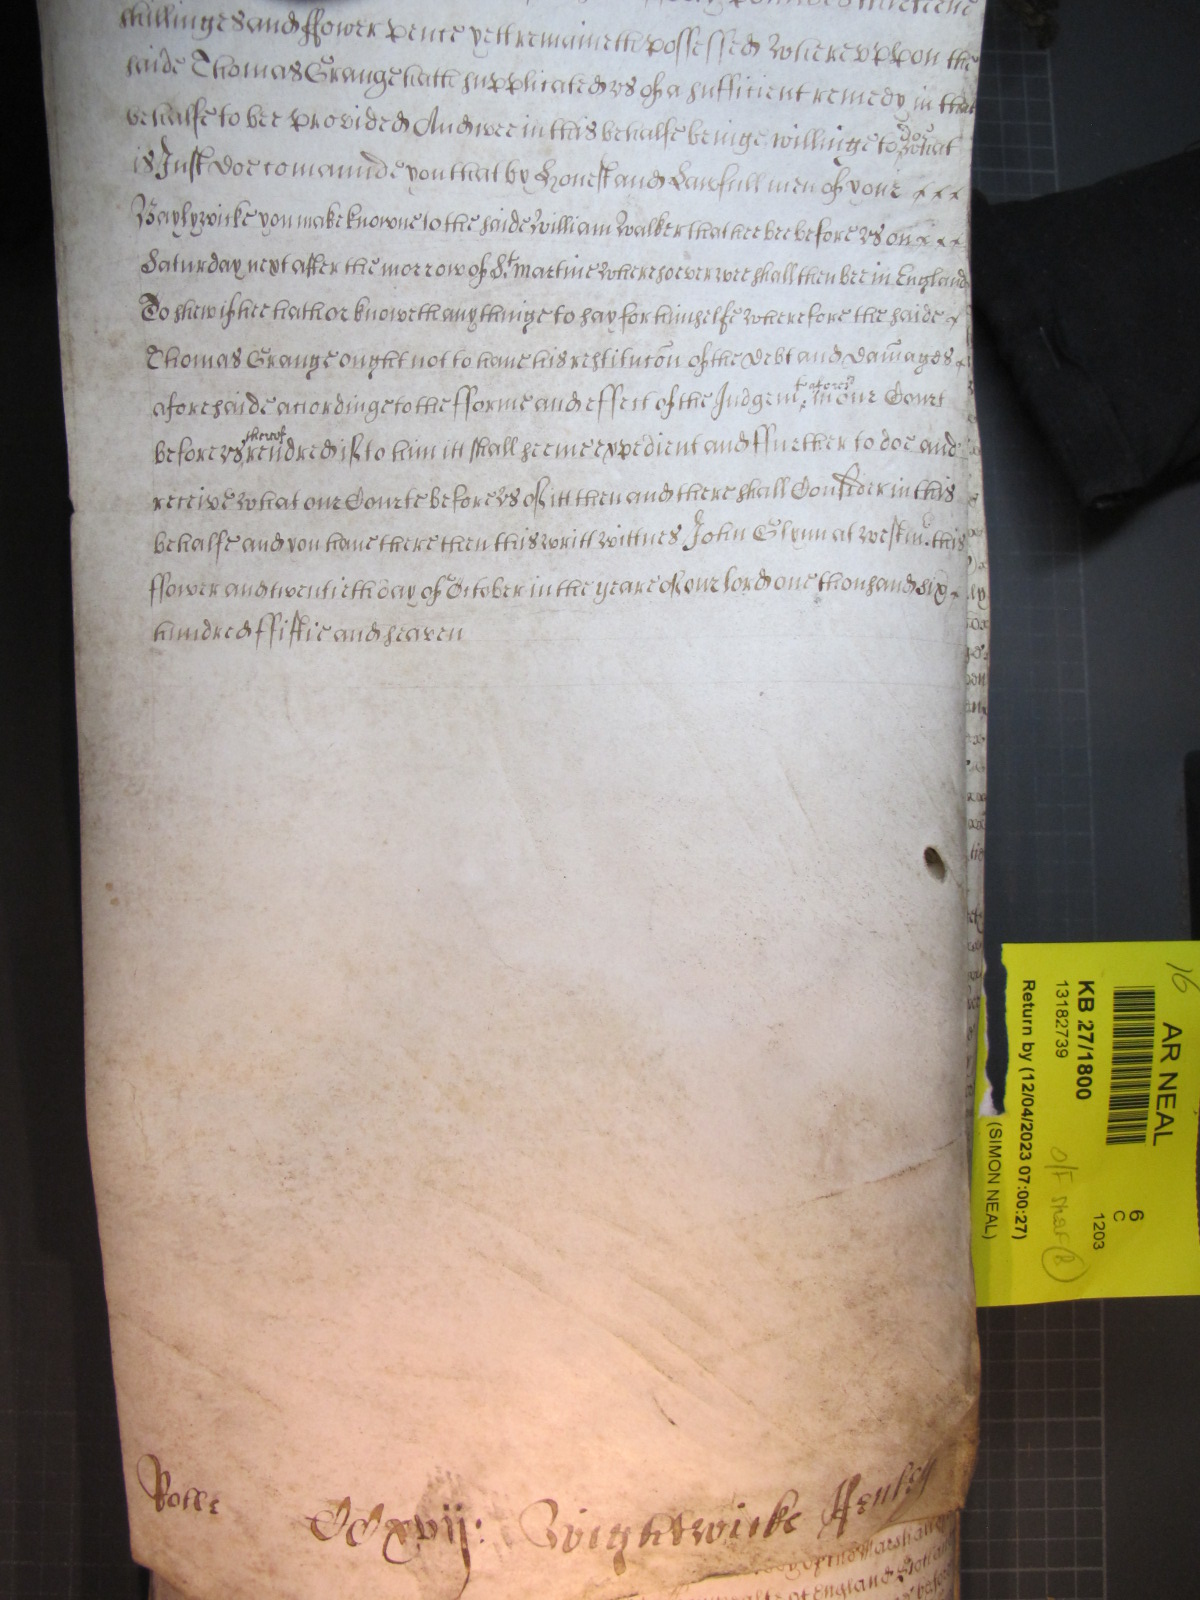 shillinges and ffower pence yett remaineth possessed Whereuppon the
saide Thomas Grange hath supplicated vs of a sufficient remedy in that
behalfe to bee provided And wee in this behalfe beinge willinge to doe what
is Just doe comaunde you that by Honest and Lawfull men of your
Baylywicke you make knowne to the saide William Walker that hee bee before vs on
Saturday next after the morrow of St Martine Wheresoever wee shall then bee in England
To shew if hee hath or knoweth any thinge to say for himselfe wherefore the saide
Thomas Grange ought not to haue his restitucon of the Debt and damages
aforesaide accordinge to the fforme and effect of the Judgemt afores in our Court
before vs thereof rendred if to him itt shall seeme expedient and ffurther to doe and
receive what our Courte before vs of itt then and there shall Consider in this
behalfe and you haue there then this writt Wittnes John Glynn at Westm. this
ffower and twentieth day of October in the yeare of our lord one thousand six
hundred ffiftie and seaven
Rolle
CCxvij: Wightwicke Henley
England
16
AR NEAL
KB 27/1800
13182739
Return by (12/04/2023 07:00:27)
(SIMON NEAL)
6
C
1203